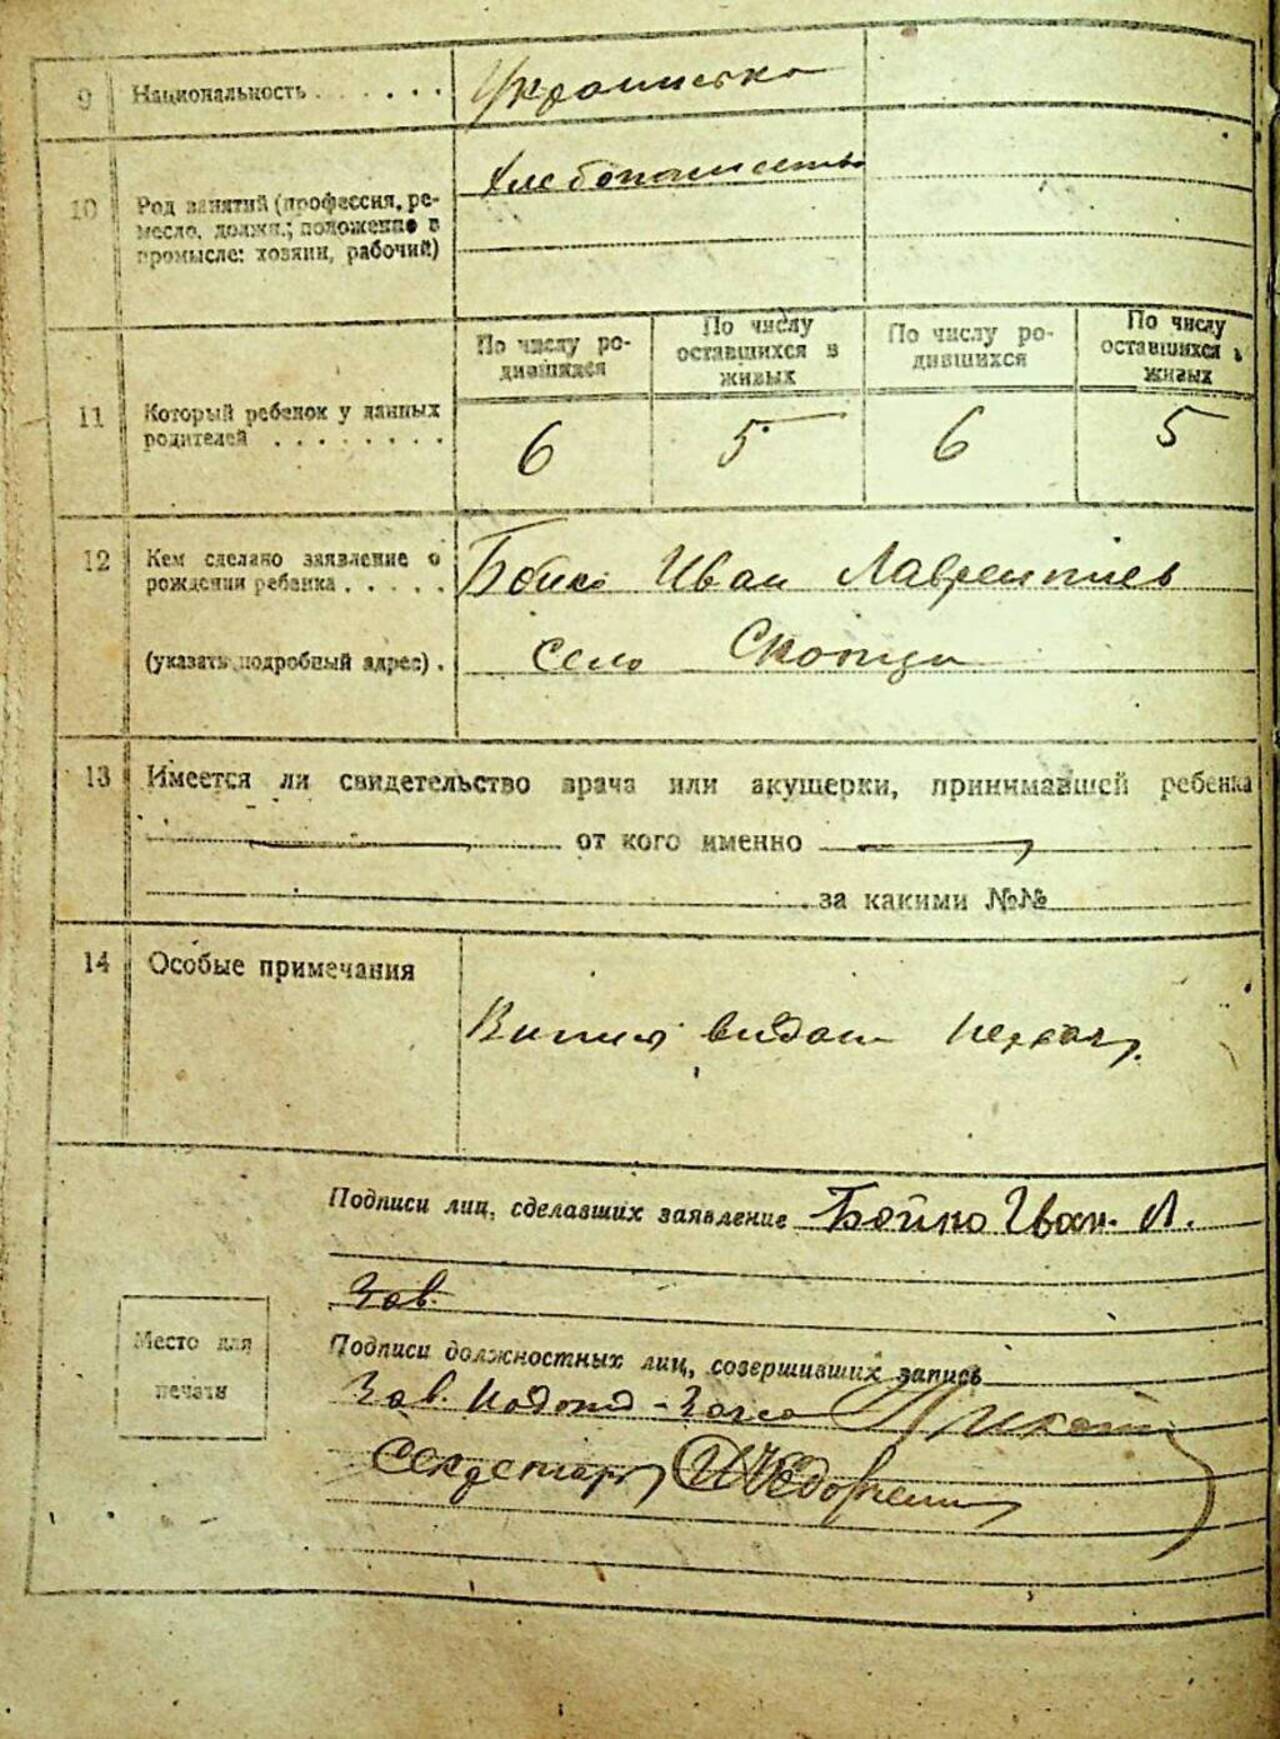 9 Национальность . . . . . . Украинська
Хлебопашество
10 Род занятий (профессия, ре-
месло, должн.; положение в
промысле: хозяин, рабочий)
По числу ро-
дившихся
По числу
оставшихся в
живых
По числу ро-
дившихся
По числу
оставшихся в
живых
11 Который ребенок у данных
родителей . . . . . . . .
6 5 6 5
12 Кем сделано заявление о
рождении ребенка . . . . .
Бойко Иван Лаврентиев
(указать подробный адрес) . село Скопци
13 Имеется ли свидетельство врача или акушерки, принимавшей ребенка
от кого именно
за какими №№
14 Особые примечания
видан
Подписи лиц, сделавших заявление Бойко Іван. Л.
Зав.
Место для
печати
Подписи должностных лиц, совершивших запись
Зав.
Секретарь